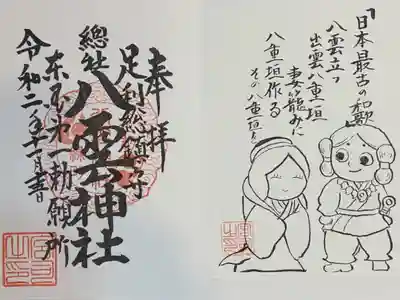 「日本最古の和歌」
八雲立つ
出雲八重垣
妻籠みに
八重垣作る
その八重垣を
奉拝
足利総鎮守
總社八雲神社
東国第一勅願所
令和二年十一月